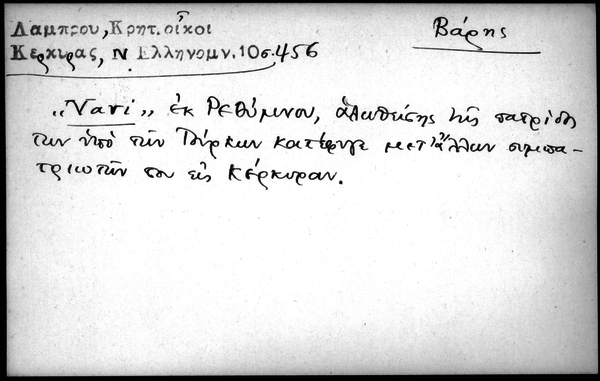 Λαμπρου, Κρητ. οἶκοι
Κερκυρας, Ν Ελληνομν. 10σ. 456
Βάρης
„Νανί„ ἐκ Ρεθύμνου, ἁλωθείσης τῆς πατρίδος
των ὑπό τῶν Τούρκων κατέφυγε μετ' ἄλλων συμπα-
τριωτῶν του εἰς Κέρκυραν.